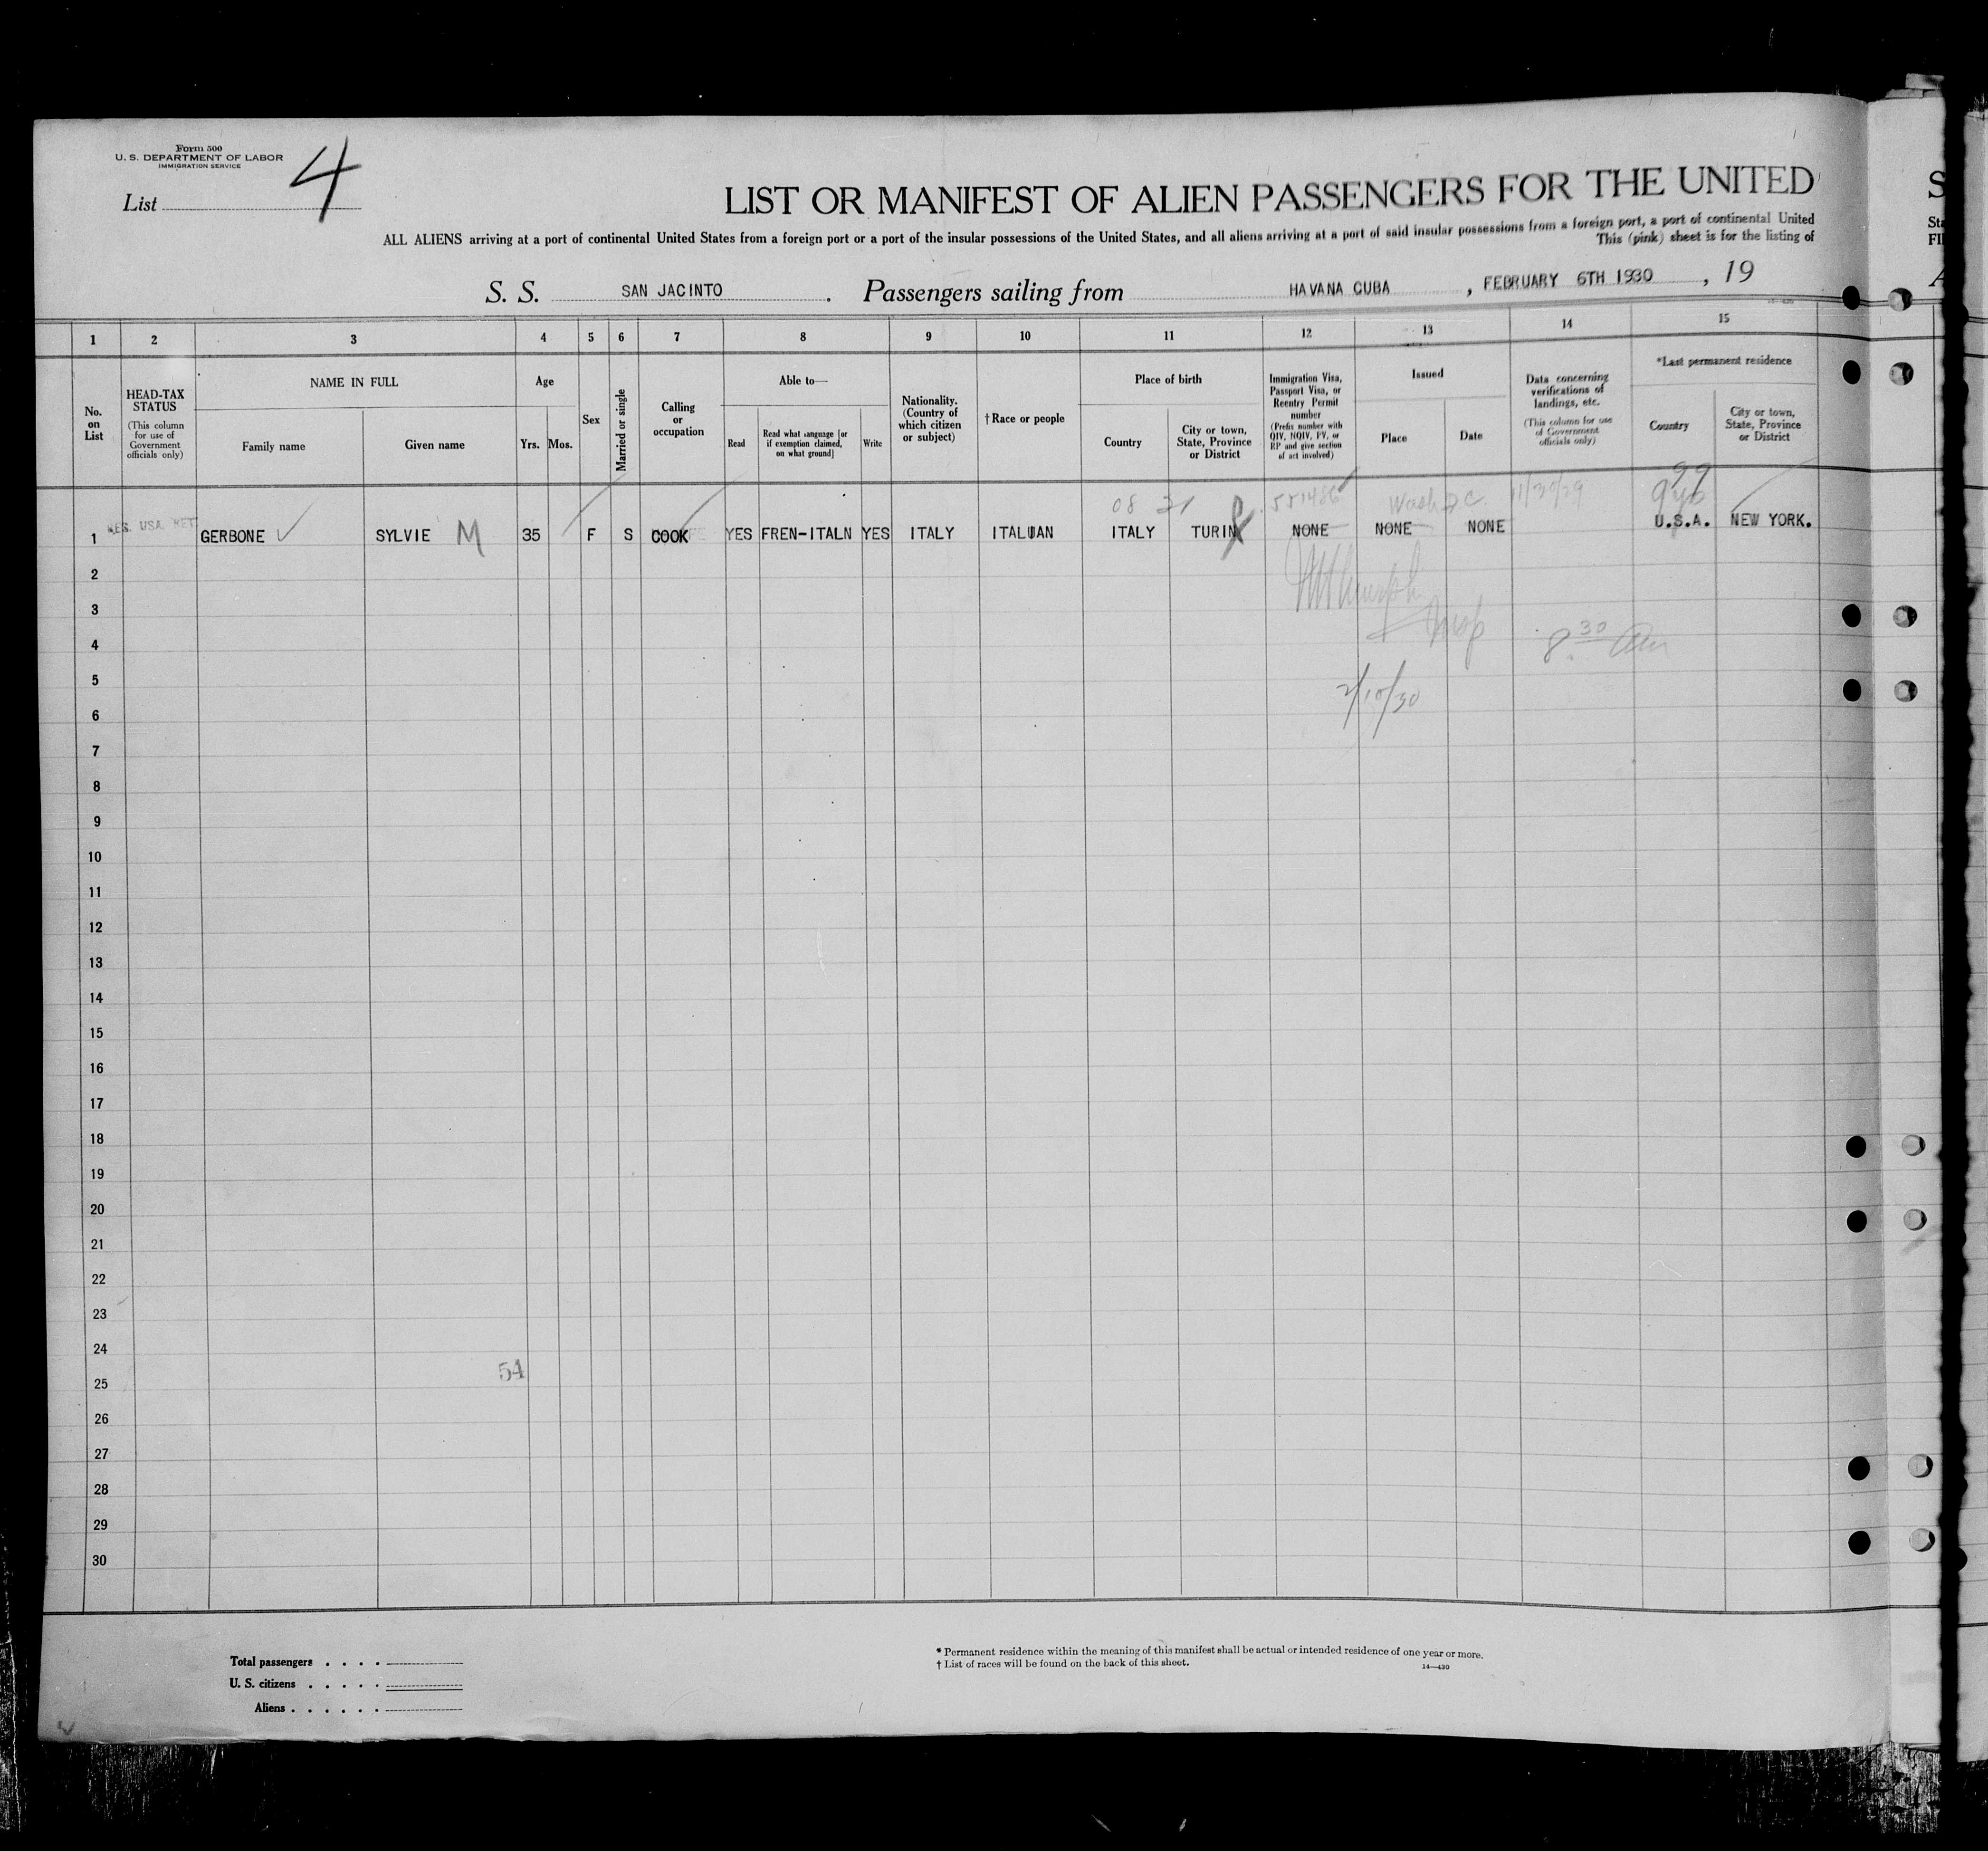 Form 500
U. S. DEPARTMENT OF LABOR
IMMIGRATION SERVICE
List 4
LIST OR MANIFEST OF ALIEN PASSENGERS FOR THE UNITED
ALL ALIENS arriving at a port of continental United States from a foreign port or a port of the insular possessions of the United States, and all aliens arriving at a port of said insular possessions from a foreign port, a port of continental United
This (pink) sheet is for the listing of
S. S. SAN JACINTO. Passengers sailing from HAVANA CUBA, FEBRUARY 6TH 1930, 19
1 2 3 4 5 6 7 8 9 10 11 12 13 14 15
No. on List
HEAD-TAX STATUS
(This column for use of Government officials only)
NAME IN FULL
Family name
Given name
Age
Yrs.
Mos.
Sex
Married or single
Calling or occupation
Able to—
Read
Read what language [or if exemption claimed, on what ground]
Write
Nationality. (Country of which citizen or subject)
†Race or people
Place of birth
Country
City or town, State, Province or District
Immigration Visa, Passport Visa, or Reentry Permit number
(Prefix number with QIV, NQIV, PV, or RP and give section of act involved)
Issued
Place
Date
Data concerning verifications of landings, etc.
(This column for use of Government officials only)
*Last permanent residence
Country
City or town, State, Province or District
08 31 551486 Wash DC 11/30/29 99
1 GERBONE SYLVIE M 35 F S COOK YES FREN-ITALN YES ITALY ITALUAN ITALY TURIN NONE NONE NONE U.S.A. NEW YORK.
2
3
Insp
4 8 30 am
5
2/10/30
6
7
8
9
10
11
12
13
14
15
16
17
18
19
20
21
22
23
24
54
25
26
27
28
29
30
Total passengers . . . .
U. S. citizens . . . . .
Aliens . . . . . .
* Permanent residence within the meaning of this manifest shall be actual or intended residence of one year or more.
† List of races will be found on the back of this sheet.
14—430